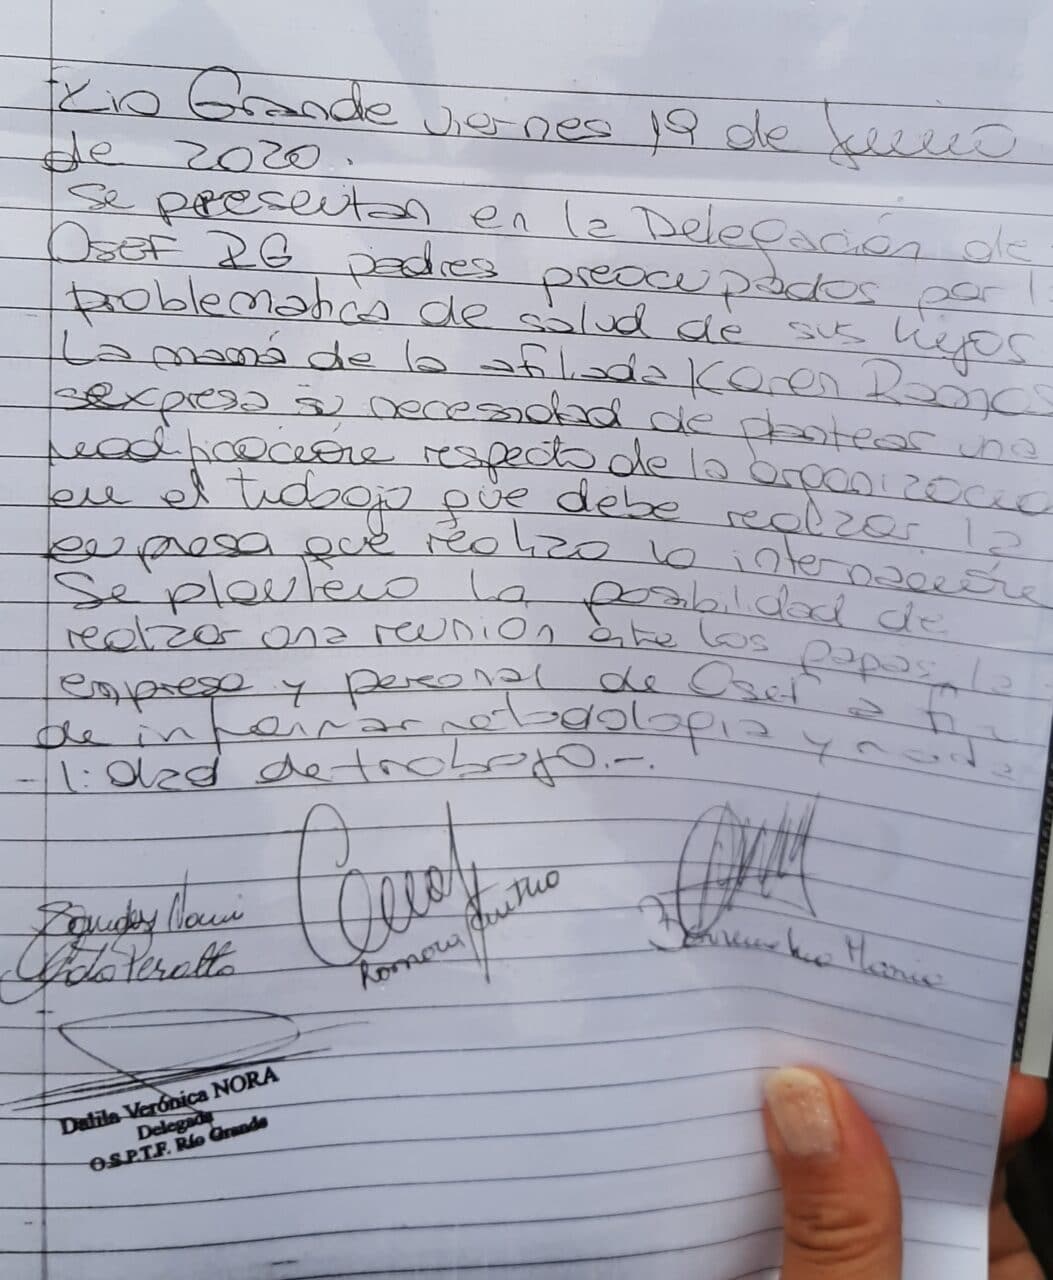 Rio Grande viernes 19 de Junio
de 2020.
Se presentan en la Delegación de
Osef RG padres preocupados por l
problematica de salud de sus hijos
La mamá de la afiliada Karen Ramos
expresa su necesidad de plantear una
modificación respecto de la organización
en el trabajo que debe realizar la
empresa que realizo la internación
Se planteo la posibilidad de
realizar una reunión entre los papas, la
empresa y personal de Osef a fin
de informar metodologia y moda
- lidad de trabajo.-.
Noemi
Peralta
Romina
Maria
Dalila Verónica NORA
Delegada
O.S.P.T.F. Río Grande